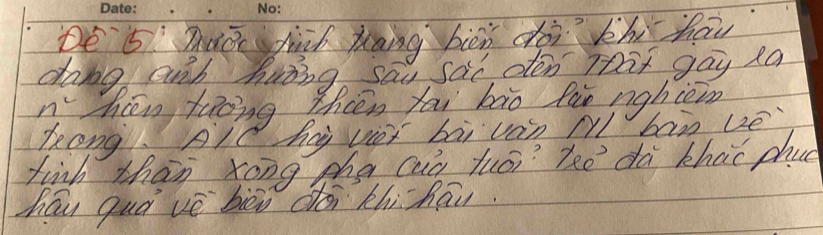 Date: . . . No:
Đề 5: Trước tình trạng biến đổi khí hậu
đang ảnh hưởng sâu sắc đến TĐất gây ra
n` hiện tượng thiên tai bão lũ nghiêm
trọng. A/C hãy viết bài văn NL bàn về
tinh thần xông pha của tuổi trẻ để khắc phục
hậu quả về biến đổi khí hậu.